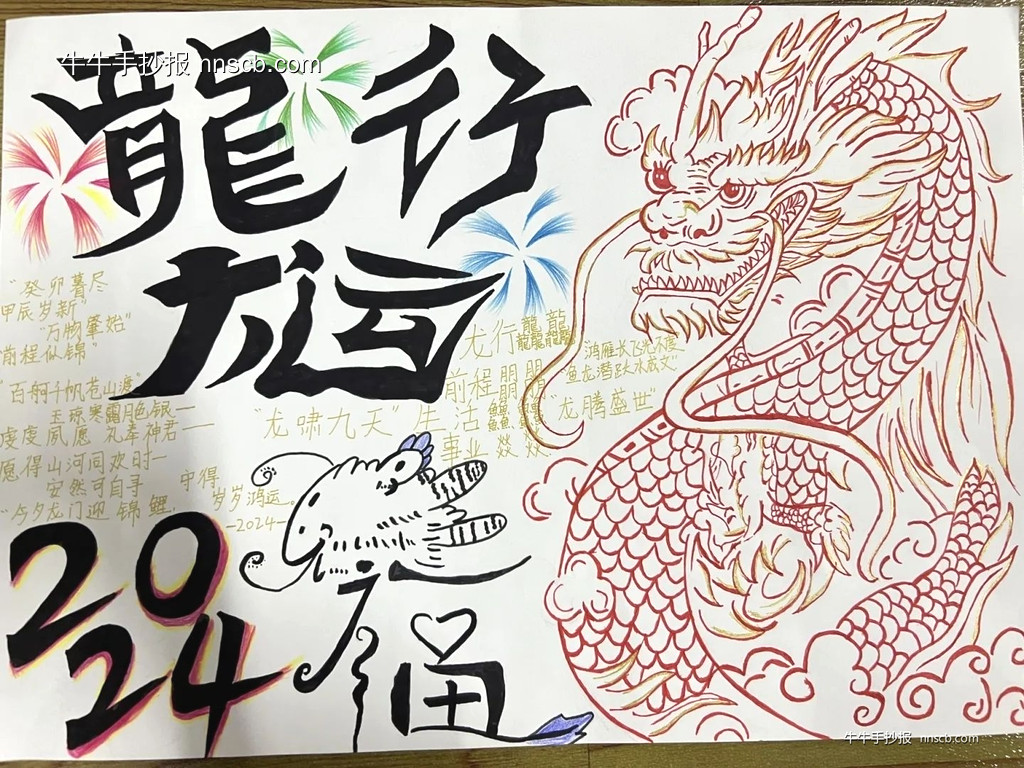 牛牛手抄报 nnscb.com
龍行
龙运
"癸卯暮尽
甲辰岁新"
"万物肇始"
前程似锦"
"百舸千帆苍山渡"
玉琼寒露月色银一
虔虔夙愿 礼奉神君一
愿得山河同欢时一
安然可自寻
"今夕龙门迎 锦 鲤,
中得
岁岁鸿运。
-2024-
"龙啸九天"
龙行龘龘
前程朤朤
生活
事业 燚燚
鸿雁长飞光不度
"鱼龙潜跃水成文"
"龙腾盛世"
2024
福
牛牛手抄报 nnscb.com